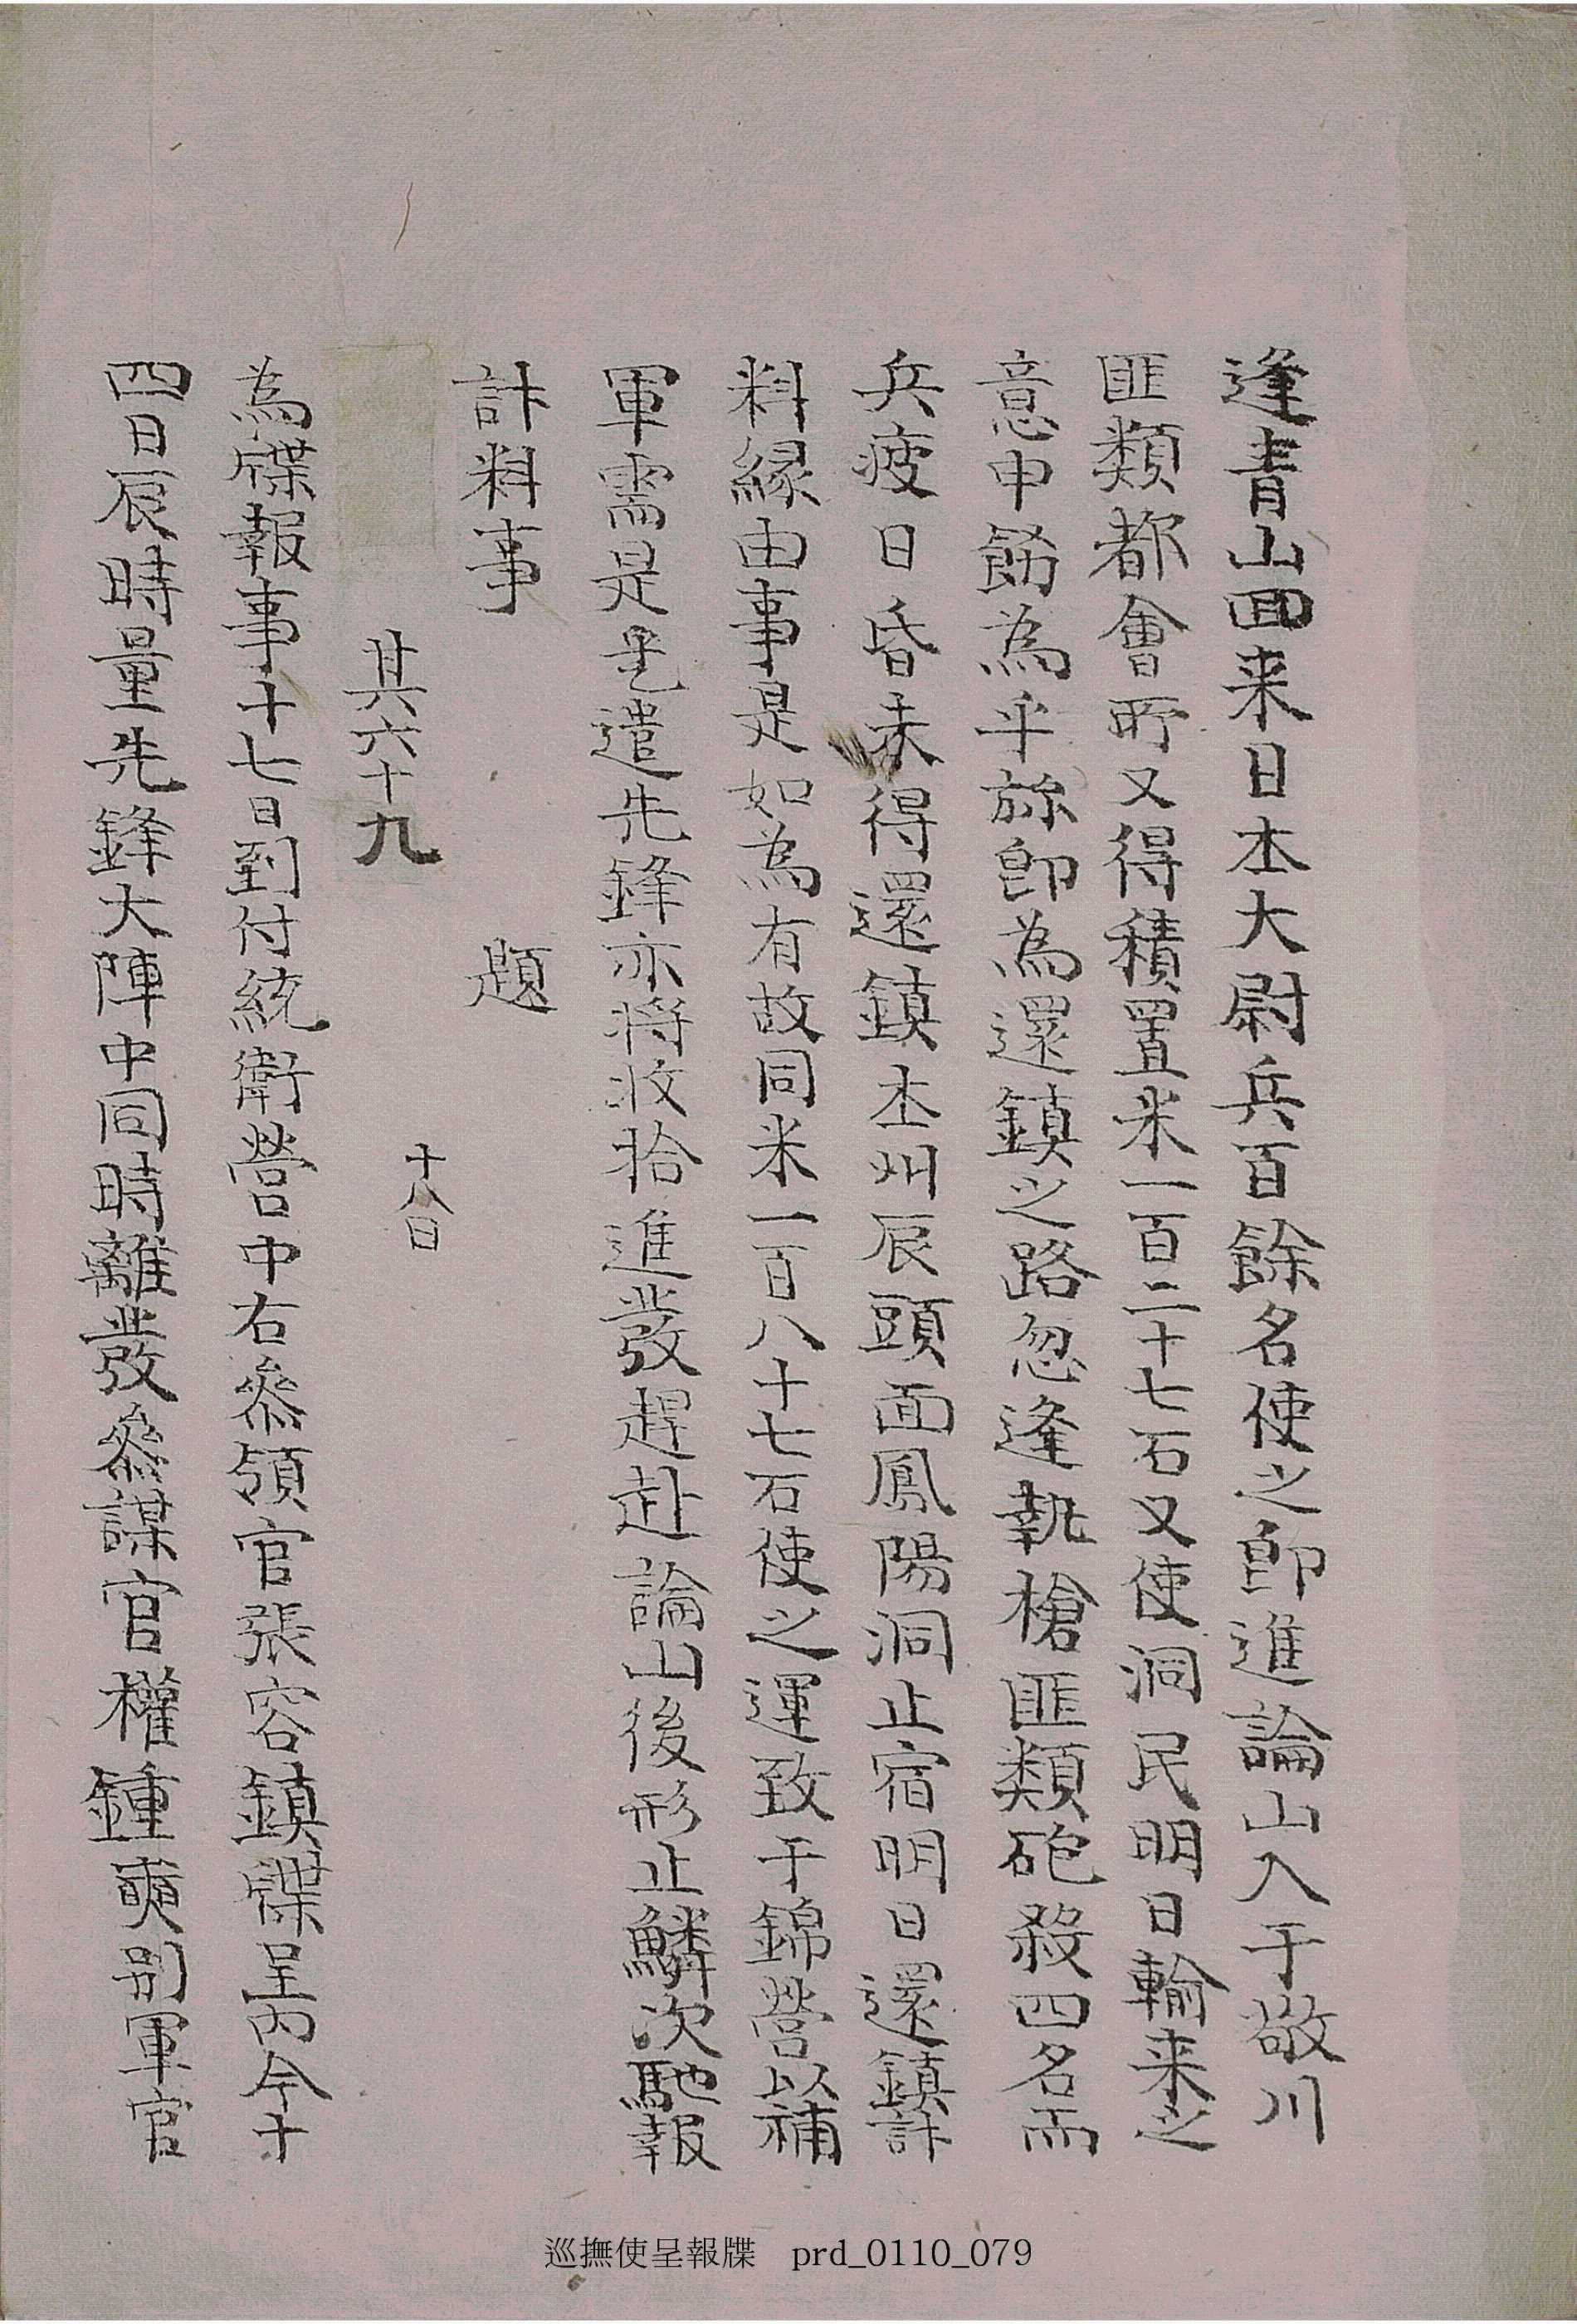 逢青山回来日本大尉兵百餘名使之即進論山入于敬川
匪類都會所又得積置米一百二十七石又使洞民明日輸来之
意申飭為乎旀即為還鎮之路忽逢執槍匪類砲殺四名而
兵疲日昏未得還鎮本州辰頭面鳳陽洞止宿明日還鎮計
料緣由事是如為有故同米一百八十七石使之運致于錦營以補
軍需是乯遣先鋒亦將收拾進發趕赴論山後形止鱗次馳報
計料事
題
十八日
其六十九
為牒報事十七日到付統衛營中右叅領官張容鎮牒呈內今十
四日辰時量先鋒大陣中同時離發叅謀官權鍾奭別軍官
巡撫使呈報牒 prd_0110_079